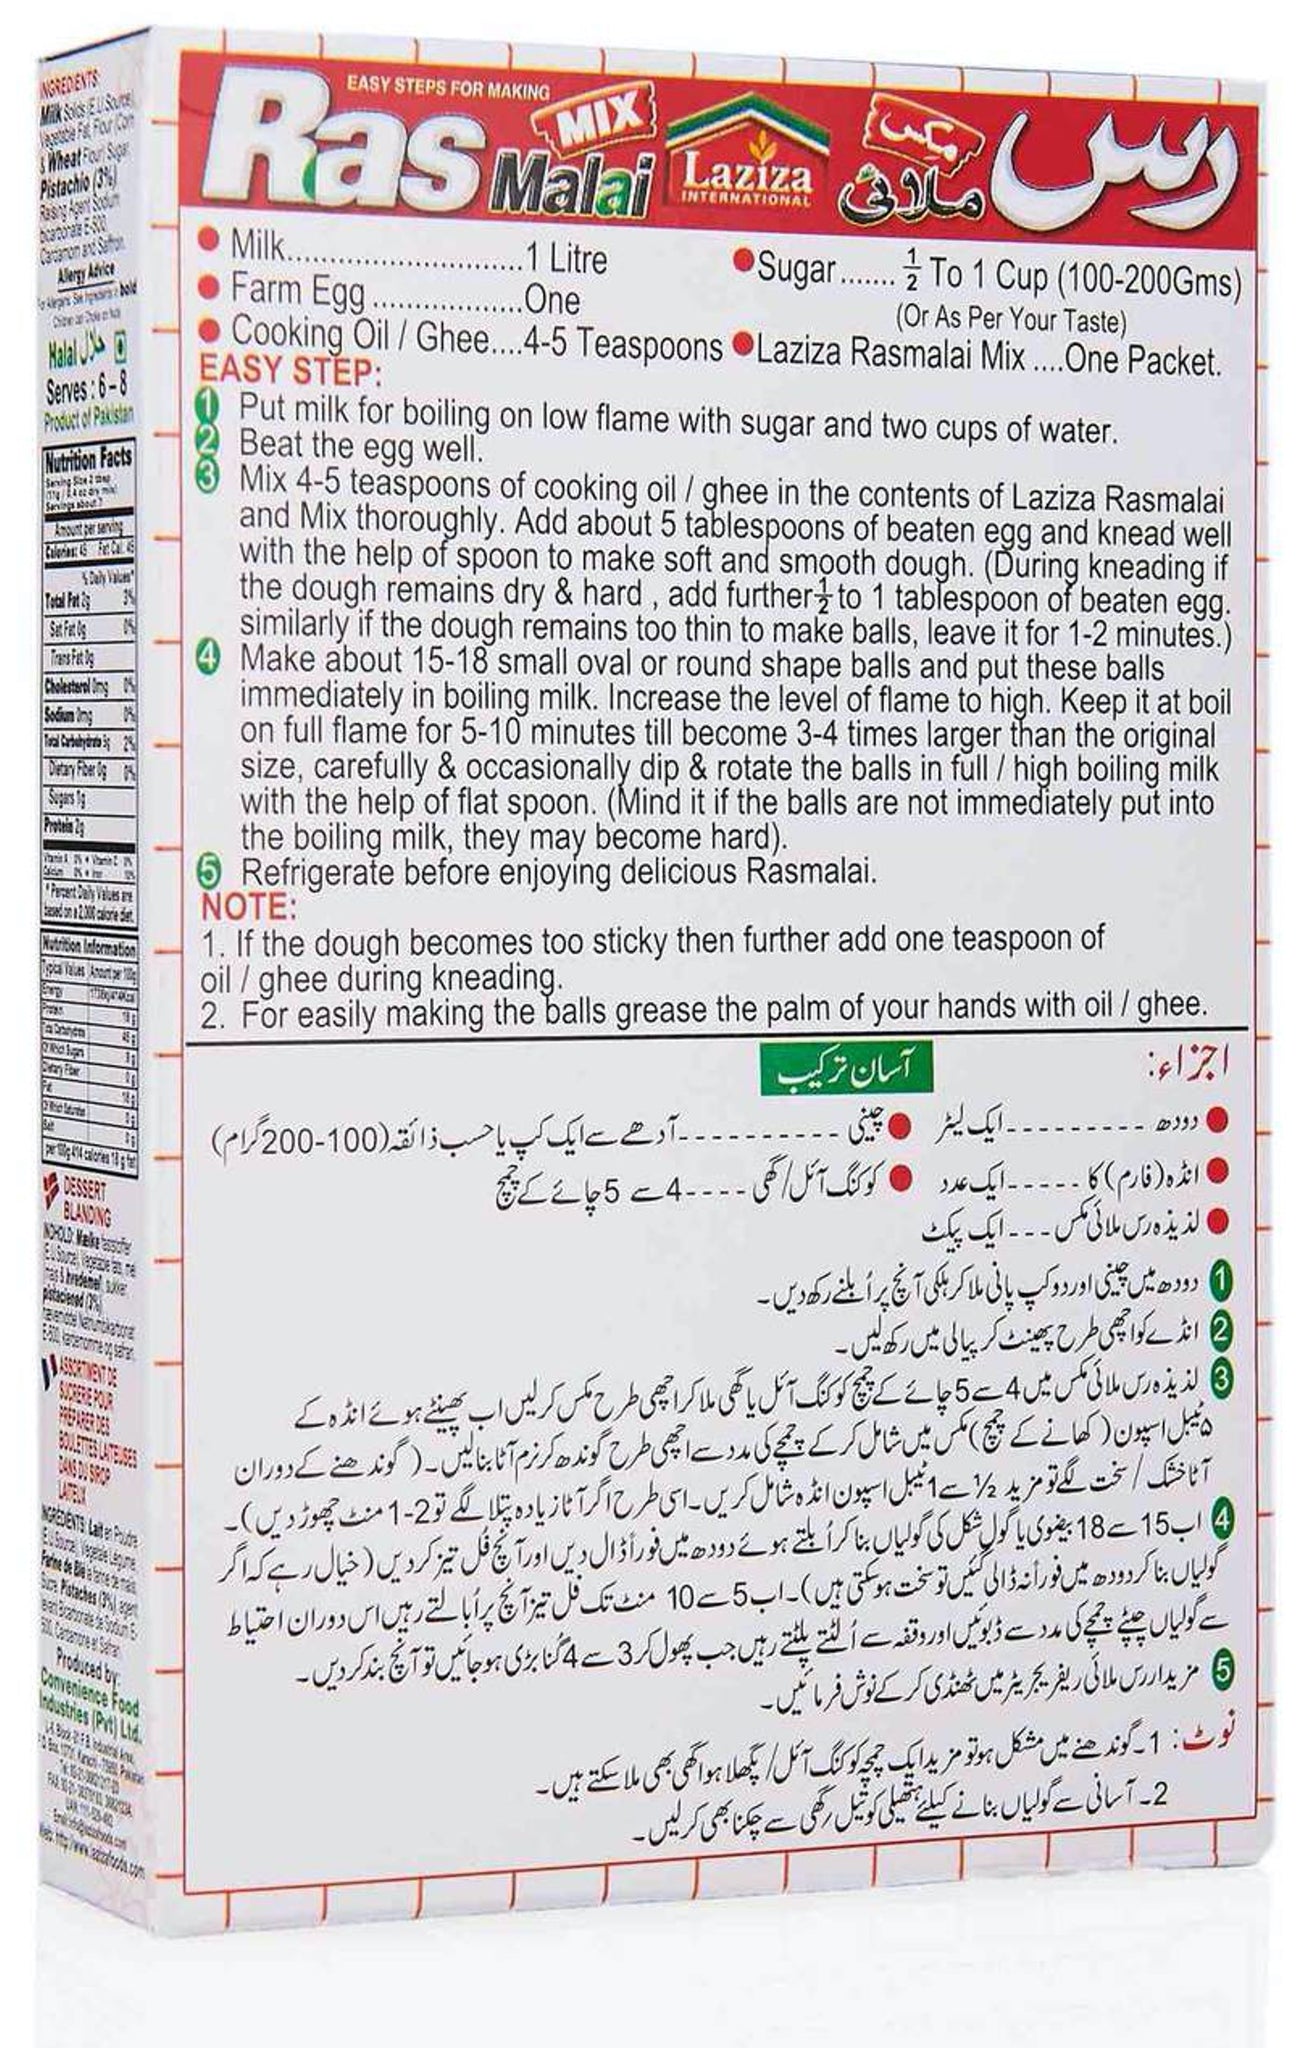 EASY STEPS FOR MAKING
Ras Malai MIX
Laziza
INTERNATIONAL
رس ملائی مکس
Milk...........................1 Litre
Farm Egg ..................One
Cooking Oil / Ghee....4-5 Teaspoons
Sugar....... ½ To 1 Cup (100-200Gms)
(Or As Per Your Taste)
Laziza Rasmalai Mix ....One Packet.
EASY STEP:
1 Put milk for boiling on low flame with sugar and two cups of water.
2 Beat the egg well.
3 Mix 4-5 teaspoons of cooking oil / ghee in the contents of Laziza Rasmalai
and Mix thoroughly. Add about 5 tablespoons of beaten egg and knead well
with the help of spoon to make soft and smooth dough. (During kneading if
the dough remains dry & hard , add further ½ to 1 tablespoon of beaten egg.
similarly if the dough remains too thin to make balls, leave it for 1-2 minutes.)
4 Make about 15-18 small oval or round shape balls and put these balls
immediately in boiling milk. Increase the level of flame to high. Keep it at boil
on full flame for 5-10 minutes till become 3-4 times larger than the original
size, carefully & occasionally dip & rotate the balls in full / high boiling milk
with the help of flat spoon. (Mind it if the balls are not immediately put into
the boiling milk, they may become hard).
5 Refrigerate before enjoying delicious Rasmalai.
NOTE:
1. If the dough becomes too sticky then further add one teaspoon of
oil / ghee during kneading.
2. For easily making the balls grease the palm of your hands with oil / ghee.
اجزاء:
آسان ترکیب
دودھ ---------- ایک لیٹر
چینی ----------- آدھے سے ایک کپ یا حسب ذائقہ (100-200 گرام)
انڈہ (فارم) کا ----- ایک عدد
کوکنگ آئل/گھی ---- 4 سے 5 چائے کے چمچ
لذیذہ رس ملائی مکس --- ایک پیکٹ
1 دودھ میں چینی اور دو کپ پانی ملا کر ہلکی آنچ پر اُبلنے رکھ دیں۔
2 انڈے کو اچھی طرح پھینٹ کر پیالی میں رکھ لیں۔
3 لذیذہ رس ملائی مکس میں 4 سے 5 چائے کے چمچ کوکنگ آئل یا گھی ملا کر اچھی طرح مکس کر لیں اب پھینٹے ہوئے انڈہ کے
۵ ٹیبل اسپون (کھانے کے چمچ) مکس میں شامل کر کے چمچے کی مدد سے اچھی طرح گوندھ کر نرم آٹا بنا لیں۔ (گوندھنے کے دوران
آٹا خشک / سخت لگے تو مزید ½ سے 1 ٹیبل اسپون انڈہ شامل کریں۔ اسی طرح اگر آٹا زیادہ پتلا لگے تو 2-1 منٹ چھوڑ دیں)۔
4 اب 15 سے 18 بیضوی یا گول شکل کی گولیاں بنا کر اُبلتے ہوئے دودھ میں فوراً ڈال دیں اور آنچ فل تیز کر دیں (خیال رہے کہ اگر
گولیاں بنا کر دودھ میں فوراً نہ ڈالی گئیں تو سخت ہو سکتی ہیں)۔ اب 5 سے 10 منٹ تک فل تیز آنچ پر اُبالتے رہیں اس دوران احتیاط
سے گولیاں چپٹے چمچے کی مدد سے ڈبوئیں اور وقفہ سے اُلٹتے پلٹتے رہیں جب پھول کر 3 سے 4 گنا بڑی ہو جائیں تو آنچ بند کر دیں۔
5 مزیدار رس ملائی ریفریجریٹر میں ٹھنڈی کر کے نوش فرمائیں۔
نوٹ: 1۔ گوندھنے میں مشکل ہو تو مزید ایک چمچہ کوکنگ آئل/ پگھلا ہوا گھی بھی ملا سکتے ہیں۔
2۔ آسانی سے گولیاں بنانے کیلئے ہتھیلی کو تیل/گھی سے چکنا بھی کر لیں۔
INGREDIENTS:
Milk Solids (E.U.Source)
Vegetable Fat, Flour (Corn
& Wheat Flour) Sugar,
Pistachio (3%)
Raising Agent Sodium
bicarbonate E-500,
Cardamom and Saffron.
Allergy Advice
For Allergens: See Ingredients in bold
Children can Choke on Nuts
Halal حلال
Serves : 6 – 8
Product of Pakistan
Nutrition Facts
Serving Size 2 tbsp
Servings about 7
Amount per serving
Calories: 45 Fat Cal. 45
% Daily Values*
Total Fat 2g 3%
Sat Fat 0g 0%
Trans Fat 0g
Cholesterol 0mg 0%
Sodium 0mg 0%
Total Carbohydrate 5g 2%
Dietary Fiber 0g 0%
Sugars 1g
Protein 2g
Vitamin A 0% • Vitamin C 0%
Calcium 0% • Iron 10%
* Percent Daily Values are
based on a 2,000 calorie diet.
Nutrition Information
Typical Values Amount per 100g
Energy
Protein
Total Carbohydrate
Of Which Sugars
Dietary Fiber 0 g
Fat 18 g
Of Which Saturates 0 g
Salt 0 g
per 100g 414 calories 18 g fat
DESSERT
BLANDING
INDHOLD: Mælke
pistacienød (3%),
E-500, kardemomme og safran.
ASSORTIMENT DE
SUCRERIE POUR
PREPARER DES
BOULETTES LAITEUSES
DANS DU SIROP
LAITEUX
INGRÉDIENTS: Lait en Poudre
Farine de Blé
Pistaches (3%)
500, Cardamome et Safran
Produced by:
Convenience Food
Industries (Pvt) Ltd.